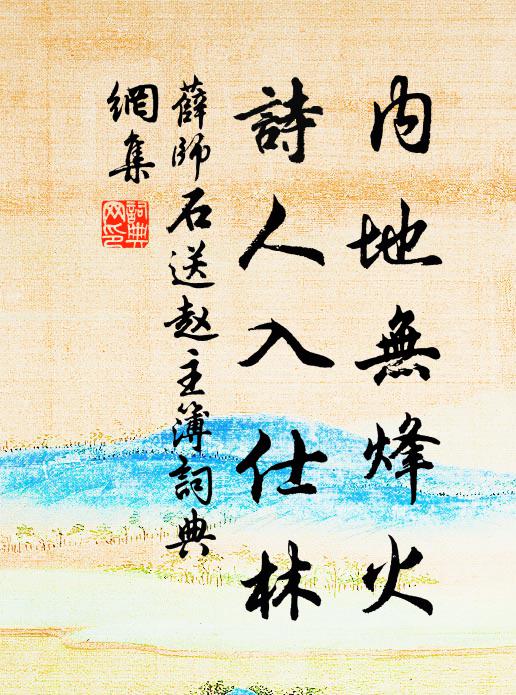 內地無烽火
詩人入仕林
薛師石送趙主簿詞典
網集
詞典網印